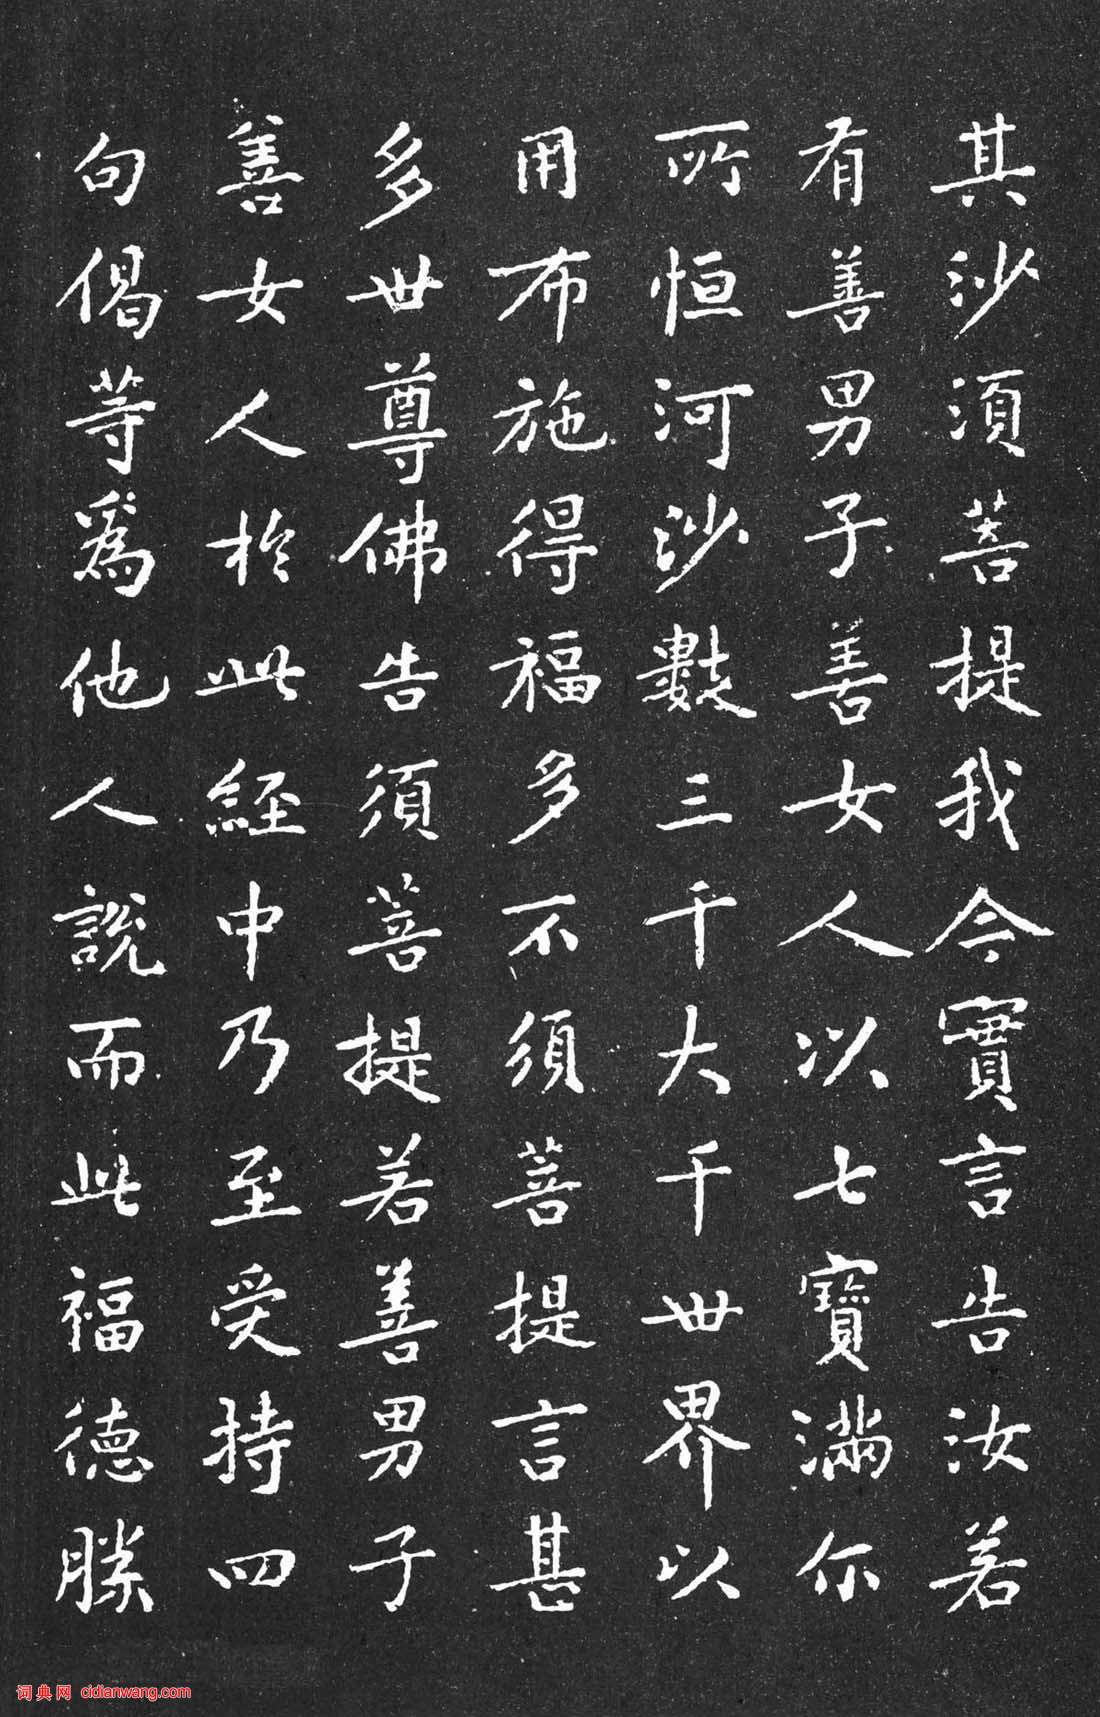 其沙須菩提我今實言告汝若
有善男子善女人以七寶滿尒
所恒河沙數三千大千世界以
用布施得福多不須菩提言甚
多世尊佛告須菩提若善男子
善女人於此經中乃至受持四
句偈等爲他人說而此福德勝
词典网 cidianwang.com